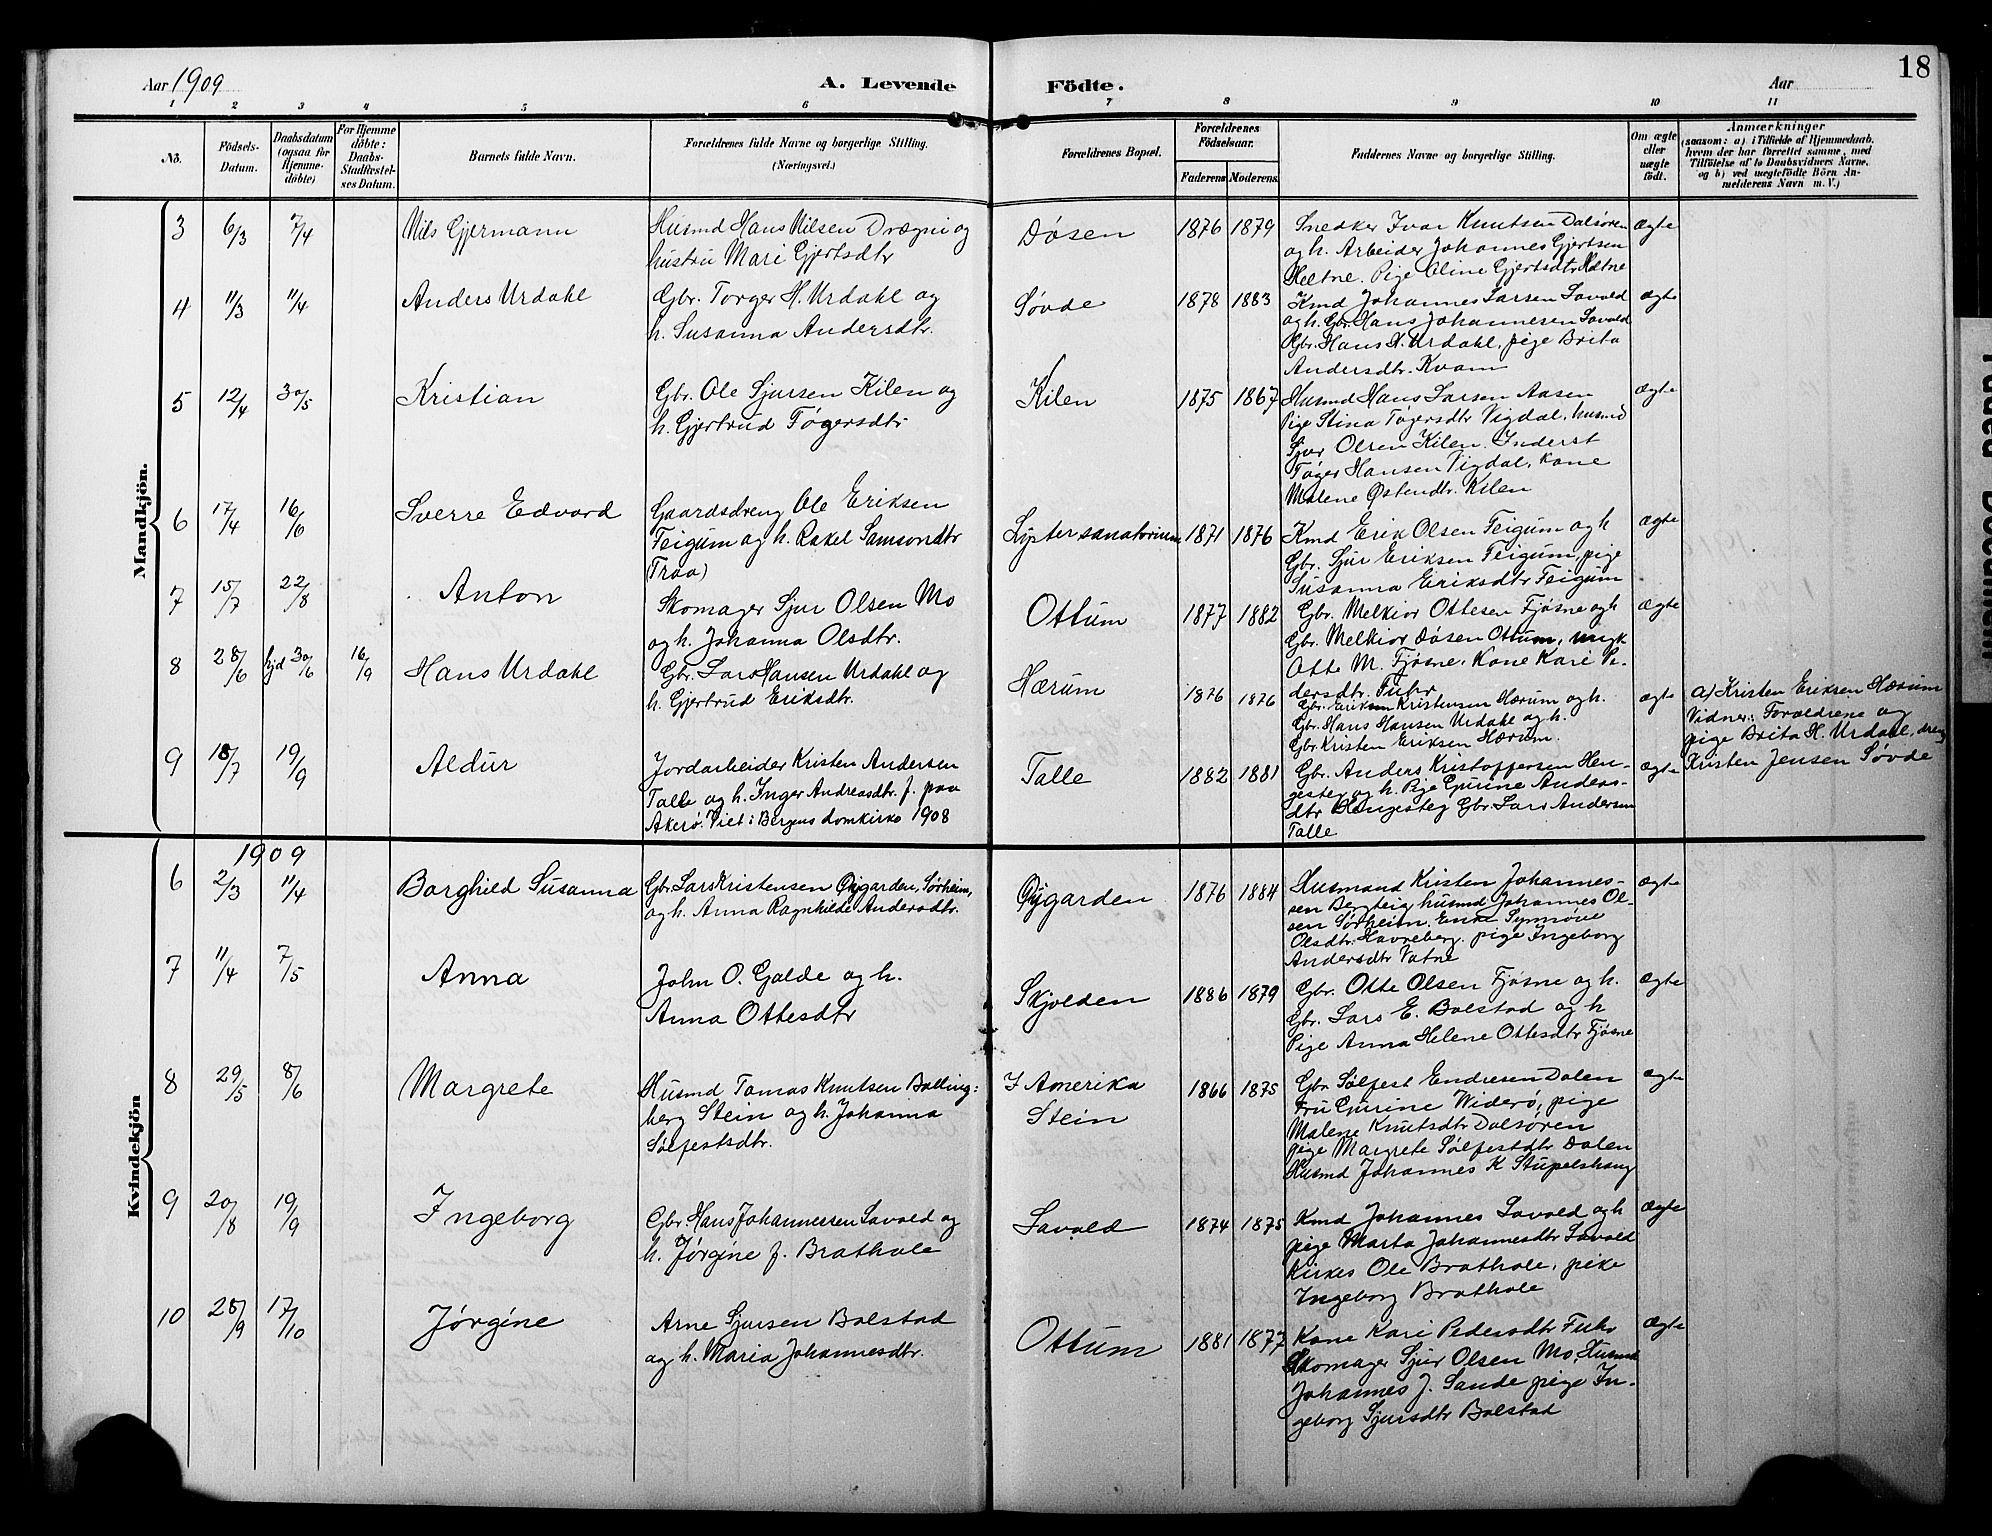 18
Aar 1909
A. Levende Födte.
Aar
1 2 3 4 5 6 7 8 9 10 11
No.
Födsels-
Datum.
Daabsdatum
(ogsaa for
Hjemme-
döbte)
For Hjemme
döbte:
Daabs-
Stadfæstel-
ses Datum.
Barnets fulde Navn.
Forældrenes fulde Navne og borgerlige Stilling.
(Næringsvei.)
Forældrenes Bopæl.
Forældrenes
Födselsaar.
Faderens
Moderens.
Faddernes Navne og borgerlige Stilling.
Om ægte
eller
uægte
födt.
Anmærkninger
(saasom: a) i Tilfælde af Hjemmedaab,
hvem der har forrettet samme, med
Tilföielse af to Daabsvidners Navne,
og b) ved uægtefödte Börn An-
melderens Navn m. V.)
Mandkjön.
3
6/3
7/4
Nils Gjermann
Husmd Hans Nilsen Drægni og
hustru Mari Gjertsdtr
Døsen
1876
1879
Snedker Ivar Knutsen Dalsøren
og h. Arbeider Johannes Gjertsen
Hætne. Pige Oline Gjertsdtr Hætne
ægte
4
11/3
11/4
Anders Urdahl
Gbr. Torger H. Urdahl og
h. Susanna Andersdtr.
Søvde
1878
1883
Kmd Johannes Larsen Savold
og h. Gbr. Hans Johannesen Savold
Gbr. Hans H. Urdahl, pige Brita
Andersdtr. Kvam
ægte
5
12/4
30/5
Kristian
Gbr. Ole Sjursen Kilen og
h. Gjertrud Tøgersdtr
Kilen
1875
1867
Husmd Hans Larsen Aasen
Pige Stina Tøgersdtr Vigdal, husmd
Sjur Olsen Kilen. Inderst
Tøger Hansen Vigdal, Kone
Malene Østendtr. Kilen
ægte
6
17/4
16/6
Sverre Edvard
Gaardsdreng Ole Eriksen
Feigum og h. Rakel Samsondtr
(Traa)
Lyster sanatorium
1871
1876
Kmd Erik Olsen Feigum og h
Gbr. Sjur Eriksen Feigum, pige
Susanna Eriksdtr Feigum
ægte
7
15/7
22/8
Anton
Skomager Sjur Olsen Mo
og h. Johanna Olsdtr.
Ottum
1877
1882
Gbr. Melkior Ottesen Fjøsne og h
Gbr. Melkior Døsen Ottum, ungk
Otte M. Fjøsne. Kone Kari Pe-
dersdtr. Fuhr
ægte
8
28/6
hjd 30/6
16/9
Hans Urdahl
Gbr. Lars Hansen Urdahl og
h. Gjertrud Eriksdtr.
Hærum
1876
1876
Gbr. Eriksen Kristensen Hærum og h.
Gbr. Hans Hansen Urdahl og h.
Gbr Kristen Eriksen Hærum.
ægte
a) Kristen Eriksen Hærum
Vidner: Forældrene og
pige Brita H. Urdahl, dreng
Kristen Jensen Søvde
9
18/7
19/9
Aldur
Jordarbeider Kristen Andersen
Talle og h. Inger Andreasdtr. f. paa
Akerø. Viet i Bergens domkirke 1908
Talle
1882
1881
Gbr. Anders Kristoffersen Hen-
gesteg og h. Pige Gurine Anders-
dtr Hengesteg Gbr. Lars Andersen
Talle
ægte
Kvindekjön
1909
6
2/3
11/4
Borghild Susanna
Gbr. Lars Kristensen Øygarden, Sørheim,
og h. Anna Ragnhilde Andersdtr.
Øygarden
1876
1884
Husmand Kristen Johannes-
sen Bergteig husmd Johannes Ol-
sen Sørheim. Enke Synnøve
Olsdtr. Havreberg. pige Ingeborg
Andersdtr Vatne
ægte
7
11/4
7/5
Anna
John O. Galde og h.
Anna Ottesdtr
Skjolden
1886
1879
Gbr. Otte Olsen Fjøsne og h.
Gbr. Lars E. Bolstad og h
Pige Anna Helene Ottesdtr Fjøsne
ægte
8
29/5
8/6
Margrete
Husmd Tomas Knutsen Bolling:
berg Stein og h. Johanna
Sølfestsdtr.
I Amerika
Stein
1866
1875
Gbr Sølfest Endresen Dalen
Fru Gurine Widerø, pige
Malene Knutsdtr Dalsøren
pige Margrete Sølfestdtr Dalen
Husmd Johannes K Stupelshaug
ægte
9
20/8
19/9
Ingeborg
Gbr. Hans Johannessen Savold og
h. Jørgine f. Brathole
Savold
1874
1875
Kmd Johannes Savold og h
pige Marta Johannesdtr Savold
Kirkes Ole Brathole, pike
Ingeborg Brathole
ægte
10
28/9
17/10
Jørgine
Arne Sjursen Bolstad
og h. Maria Johannesdtr.
Ottum
1881
1877
Kone Kari Pedersdtr Fuhr
Skomager Sjur Olsen Mo, Husmd
Johannes J. Sande pige In-
geborg Sjursdtr Bolstad
ægte